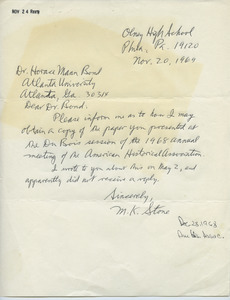 NOV 24 Rec'd
Olney High School
Phila., Pa. 19120
Nov. 20, 1969
Dr. Horace Mann Bond
Atlanta University
Atlanta, Ga. 30314
Dear Dr. Bond:
Please inform me as to how I may
obtain a copy of the paper you presented at
the Du Bois session of the 1968 annual
meeting of the American Historical Association.
I wrote to you about this on May 2, and
apparently did not receive a reply.
Sincerely,
M. K. Stone
Dec 28, 1968